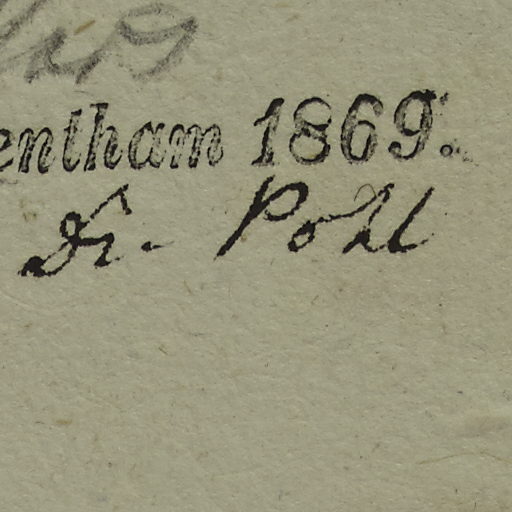 entham 1869.
Dr. Pohl